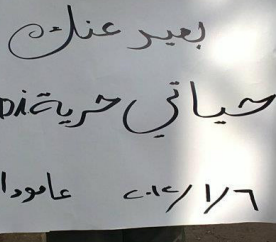 بعيد عنك
حياتي حرية
عامودا ٢٠١٢/١/٦